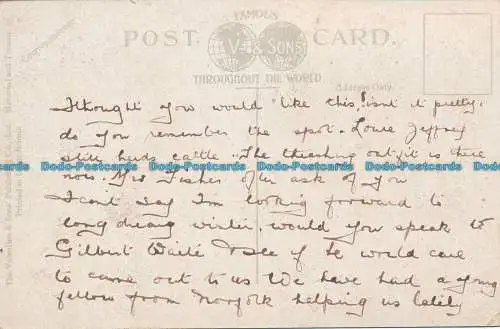 FAMOUS
POST CARD.
V. & SONS
THROUGHOUT THE WORLD
Address Only.
Correspondence.
The Valentine & Sons' Publishing Co., Ltd., Montreal and Toronto
Printed in Great Britain
I thought you would like this, isnt it pretty.
do you remember the spot. Louie Jeffrey
still herds cattle. The threshing outfit is here
now. Mrs Fisher often ask of you
I cant say I'm looking forward to
long dreary winter. would you speak to
Gilbert Waite & see if he would care
to come out to us We have had a young
fellow from Norfolk helping us lately
Dodo-Postcards Dodo-Postcards Dodo-Postcards Dodo-Postcards Dodo-Postcards